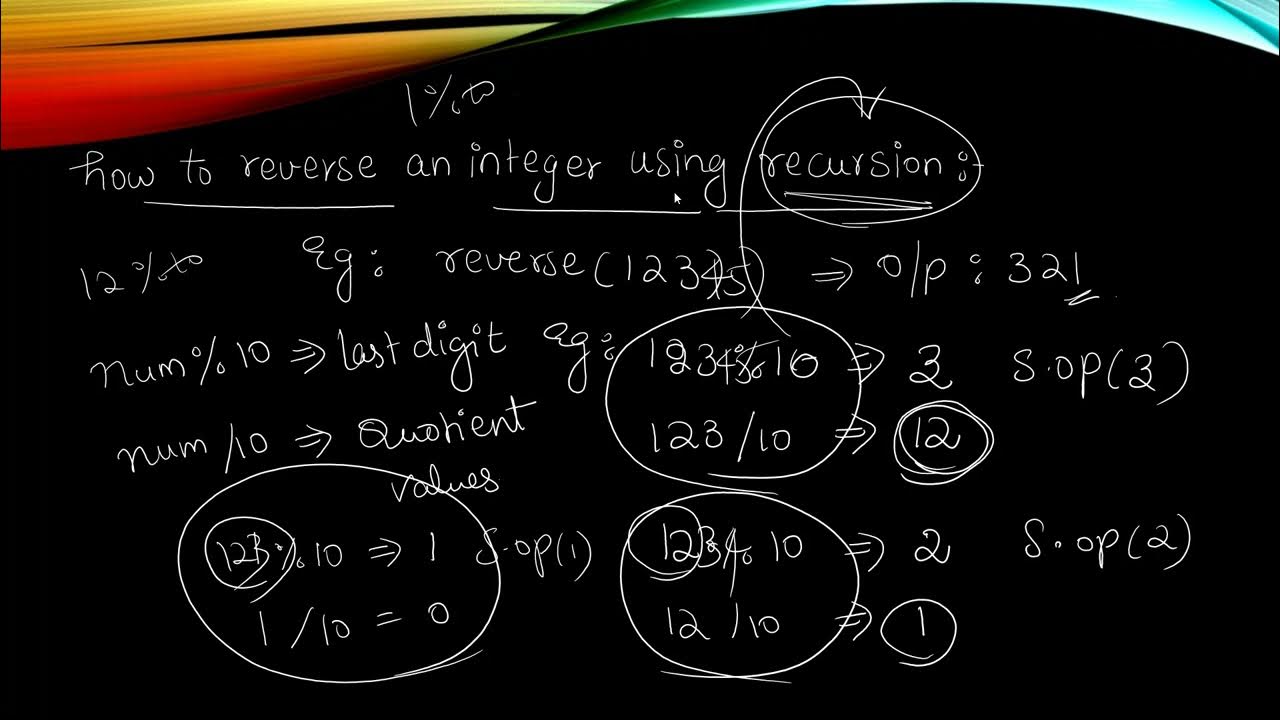 1%
how to reverse an integer using recursion:-
12% Eg: reverse(12345) => O/p: 321
num%10 => last digit Eg: 12345%10 => 3 S.op(3)
num/10 => Quotient values 123/10 => 12
123%10 => 1 S.op(1) 1234% 10 => 2 S.op(2)
1/10 = 0 12/10 => 1